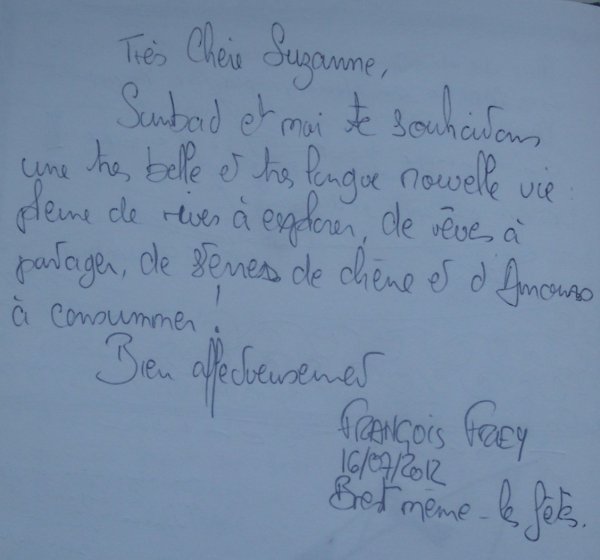 Très Chère Suzanne,
Sambad et moi te souhaitons
une très belle et très longue nouvelle vie
pleine de rives à explorer, de rêves à
partager, de de chêne et d'Amours
à consummer !
Bien affectueusement
FRANÇOIS FREY
16/07/2012
Brest même - les fêtes.